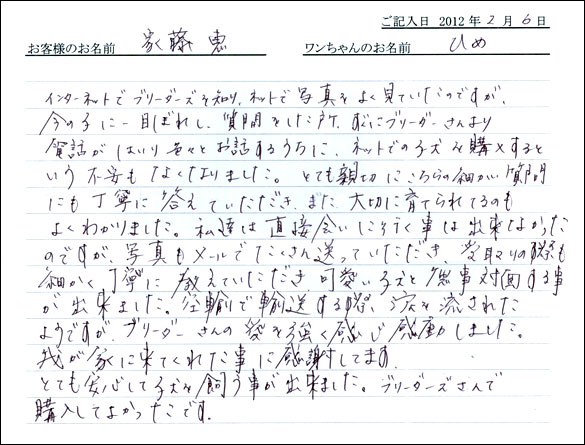 ご記入日 2012年2月6日
お客様のお名前 家藤 恵 ワンちゃんのお名前 ひめ
インターネットでブリーダーズを知り、ネットで写真をよく見ていたのですが、
今の子に一目ぼれし、質問をした所、すぐにブリーダーさんより
電話がはいり色々とお話するうちに、ネットでの子犬を購入すると
いう不安もなくなりました。とても親切にこちらの細かい質問
にも丁寧に答えていただき、また大切に育てられてるのも
よくわかりました。私達は直接会いに行く事は出来なかった
のですが、写真もメールでたくさん送っていただき、受取りの際も
細かく丁寧に教えていただき、可愛い子犬と無事対面する事
が出来ました。空輸で輸送する際、涙を流された
ようですが、ブリーダーさんの愛を強く感じ感動しました。
我が家に来てくれた事に感謝してます。
とても安心して子犬を飼う事が出来ました。ブリーダーズさんで
購入してよかったです。